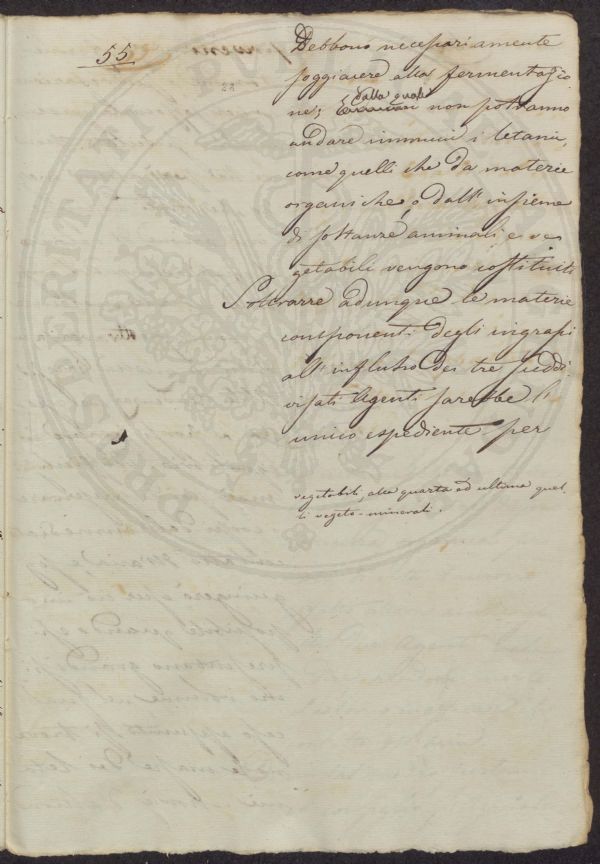 55
Debbono necessariamente
soggiacere alla fermentazio
ne; dalla quale non potranno
andare immuni i letami,
come quelli che da materie
organiche, o dall' insieme
di sostanze animali e ve
getabili vengono costituiti
Sottrarre adunque le materie
componenti degli ingrassi
all' influsso dei tre suddi
visati Agenti sarebbe l'
unico espediente per
vegetabili, alla quarta ed ultima quel=
li vegeto-minerali.